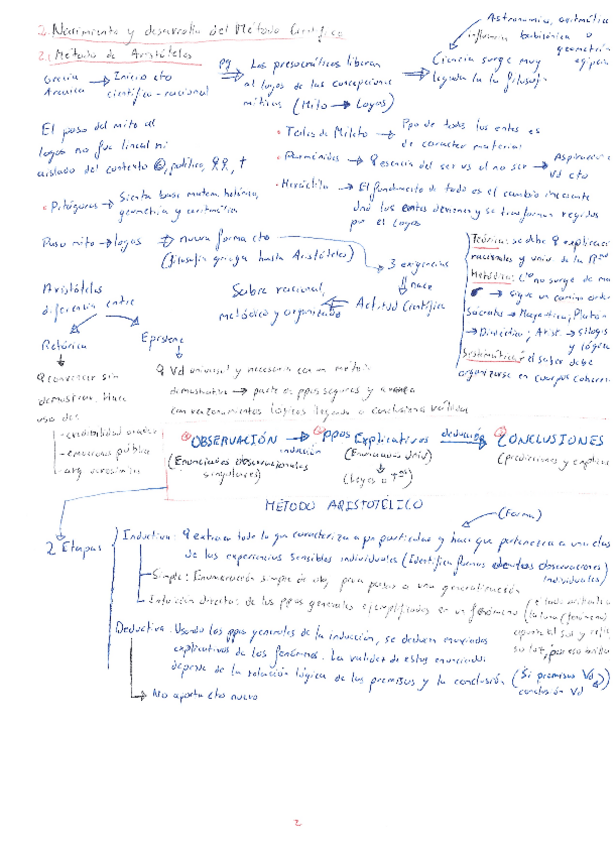 2. Nacimiento y desarrollo del Método Científico
2.1 Método de Aristóteles
Astronomía, aritmética
influencia babilónica o
geometría
egipcia
Grecia → Inicio cto
Arcaica científico-racional
pq
Los presocráticos liberan
al logos de las concepciones
míticas (Mito → Logos)
Ciencia surge muy
ligada a la filosofía
El paso del mito al
logos no fue lineal ni
aislado del contexto político,
• Tales de Mileto → Ppo de todos los entes es
de caracter material
• Parménides → esencia del ser vs el no ser → Aspiración
Vd cto
• Heráclito → El fundamento de todo es el cambio incesante
los entes devienen y se transforman regidos
por el Logos
• Pitágoras → Sienta base matem, botánica,
geometría y aritmética
Paso mito → logos → nueva forma cto
(Filosofía griega hasta Aristóteles)
3 exigencias
nace
Actitud Científica
Saber racional,
metódico y organizado
Teórica: se debe explicación
racionales y univ. de la
Metódica: Cto no surge de
→ sigue un camino orden
Sócrates → Mayéutica; Platón
→ Dialéctica; Arist. → Silogis
y lógica
Sistemática: el saber debe
organizarse en cuerpo coherente
Aristóteles
diferencia entre
Retórica
Episteme
convencer sin
demostrar. Hace
uso de:
- credibilidad orador
- emociones público
- arg. verosímiles
Vd universal y necesaria con un método
demostrativo → parte de ppios seguros y avanza
con razonamientos lógicos llegando a conclusiones válidas
① OBSERVACIÓN → ② PPOS Explicativos deducción → ③ CONCLUSIONES
inducción
(Enunciados observacionales
singulares)
(Enunciados Univ)
(Leyes o Tas)
(predicciones y explica
MÉTODO ARISTOTÉLICO
(Forma)
2 Etapas
Inductiva: extraer todo lo que caracteriza a un particular y hace que pertenezca a una clase
de las experiencias sensibles individuales (Identifica formas observaciones
individuales)
- Simple: Enumeración simple de obs, para pasar a una generalización
- Intuición directa: de los ppos generales ejemplificados en un fenómeno
Deductiva: Usando los ppos generales de la inducción, se deducen enunciados
explicativos de los fenómenos. La validez de estos enunciados
depende de la relación lógica de las premisas y la conclusión (Si premisas Vd
conclusión Vd
→ No aporta cto nuevo
2